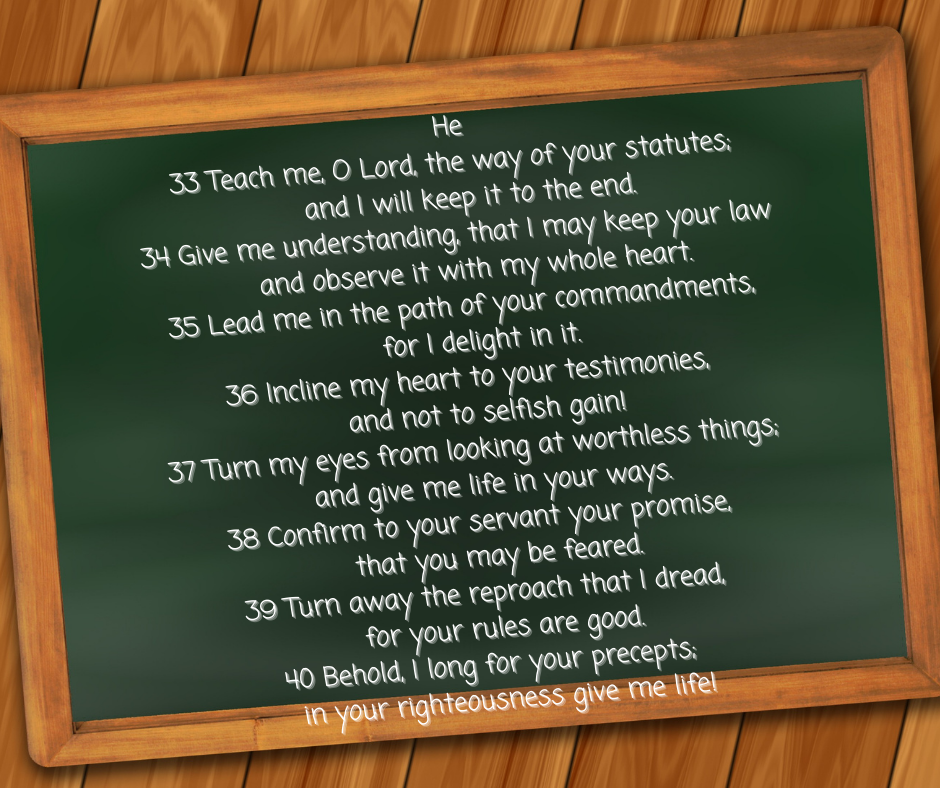 He
33 Teach me, O Lord, the way of your statutes;
and I will keep it to the end.
34 Give me understanding, that I may keep your law
and observe it with my whole heart.
35 Lead me in the path of your commandments,
for I delight in it.
36 Incline my heart to your testimonies,
and not to selfish gain!
37 Turn my eyes from looking at worthless things;
and give me life in your ways.
38 Confirm to your servant your promise,
that you may be feared.
39 Turn away the reproach that I dread,
for your rules are good.
40 Behold, I long for your precepts;
in your righteousness give me life!